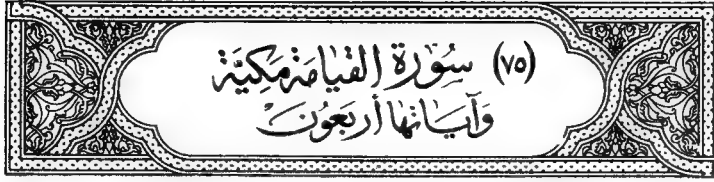 (٧٥) سُوْرَةُ القِيَامَةِ مَكِيَّة
وَآيَاتُهَا أَرْبَعُونَ